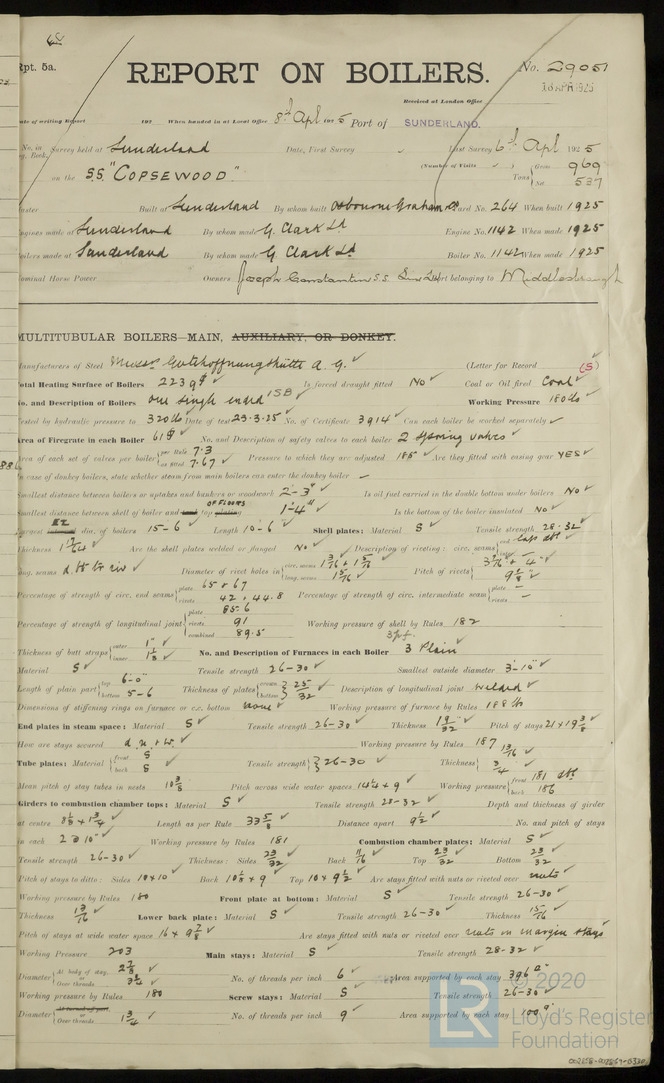 Rpt. 5a.
REPORT ON BOILERS.
No. 29051
Received at London Office
18 APR 1925
Date of writing Report 192 When handed in at Local Office 8th Apl 1925 Port of SUNDERLAND.
No. in Survey held at Sunderland Date, First Survey Last Survey 6th Apl 1925
Reg. Book.
(Number of Visits )
on the S.S. "COPSEWOOD" Tons { Gross 969
Net 537
Built at Sunderland By whom built Osbourne Graham & Co Yard No. 264 When built 1925
Engines made at Sunderland By whom made G. Clark Ld Engine No. 1142 When made 1925
Boilers made at Sunderland By whom made G. Clark Ld Boiler No. 1142 When made 1925
Nominal Horse Power Owners Joseph Constantine S.S. Line Ld Port belonging to Middlesbrough
MULTITUBULAR BOILERS—MAIN, AUXILIARY, OR DONKEY.
Manufacturers of Steel Messrs Gutehoffnungshütte A. G. (Letter for Record (S)
Total Heating Surface of Boilers 2239 Is forced draught fitted No Coal or Oil fired Coal
No. and Description of Boilers One single ended 1SB Working Pressure 180 lbs
Tested by hydraulic pressure to 320 lb Date of test 23.3.25 No. of Certificate 3914 Can each boiler be worked separately
Area of Firegrate in each Boiler No. and Description of safety valves to each boiler 2 spring valves
Area of each set of valves per boiler { per Rule 7.3
as fitted 7.67 Pressure to which they are adjusted 185 Are they fitted with easing gear YES
In case of donkey boilers, state whether steam from main boilers can enter the donkey boiler –
Smallest distance between boilers or uptakes and bunkers or woodwork 2'-3" Is oil fuel carried in the double bottom under boilers No
Smallest distance between shell of boiler and tank top plating OF FLOORS 1'-4" Is the bottom of the boiler insulated No
Largest dia. of boilers 15-6 Length 10-6 Shell plates: Material S Tensile strength 28-32
Thickness Are the shell plates welded or flanged No Description of riveting: circ. seams { end lap
long. seams Diameter of rivet holes in { circ. seams
long. seams Pitch of rivets {
Percentage of strength of circ. end seams { plate 65 & 67
rivets 42 & 44.8 Percentage of strength of circ. intermediate seam { plate –
rivets –
Percentage of strength of longitudinal joint { plate 85.6
rivets 91
combined 89.5 Working pressure of shell by Rules 182
Thickness of butt straps { outer 1"
inner 1 1/8 No. and Description of Furnaces in each Boiler 3 Plain
Material S Tensile strength 26-30 Smallest outside diameter 3'-10"
Length of plain part { top 6-0
bottom 5-6 Thickness of plates { crown
bottom } 25/32 Description of longitudinal joint welded
Dimensions of stiffening rings on furnace or c.c. bottom none Working pressure of furnace by Rules 188 lb
End plates in steam space: Material S Tensile strength 26-30 Thickness 19/32 Pitch of stays 21 x 19 3/8
How are stays secured d.n. & w. Working pressure by Rules 187
Tube plates: Material { front S
back S Tensile strength { 26-30 Thickness { 13/16
3/4
Mean pitch of stay tubes in nests 10 3/8 Pitch across wide water spaces 14 1/4 x 9 Working pressure { front 181
back 186
Girders to combustion chamber tops: Material S Tensile strength 28-32 Depth and thickness of girder
at centre 8 1/8 x 1 3/4 Length as per Rule 33 5/8 Distance apart 9 1/2 No. and pitch of stays
in each 2 @ 10" Working pressure by Rules 181 Combustion chamber plates: Material S
Tensile strength 26-30 Thickness: Sides 23/32 Back 11/16 Top 23/32 Bottom 23/32
Pitch of stays to ditto: Sides 10 x 10 Back 10 1/8 x 9 Top 10 x 9 1/2 Are stays fitted with nuts or riveted over nuts
Working pressure by Rules 180 Front plate at bottom: Material S Tensile strength 26-30
Thickness 13/16 Lower back plate: Material S Tensile strength 26-30 Thickness 15/16
Pitch of stays at wide water space 16 x 9 7/8 Are stays fitted with nuts or riveted over nuts in margin stays
Working Pressure 203 Main stays: Material S Tensile strength 28-32
Diameter { At body of stay,
or
Over threads No. of threads per inch 6 Area supported by each stay 396
Working pressure by Rules 180 Screw stays: Material S Tensile strength 26-30
Diameter { At turned off part,
or
Over threads 1 3/4 No. of threads per inch 9 Area supported by each stay 100
© 2020
LR
Lloyd's Register
Foundation